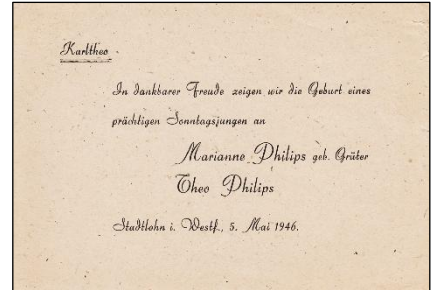 Karltheo
In dankbarer Freude zeigen wir die Geburt eines
prächtigen Sonntagsjungen an
Marianne Philips geb. Grüter
Theo Philips
Stadtlohn i. Westf., 5. Mai 1946.